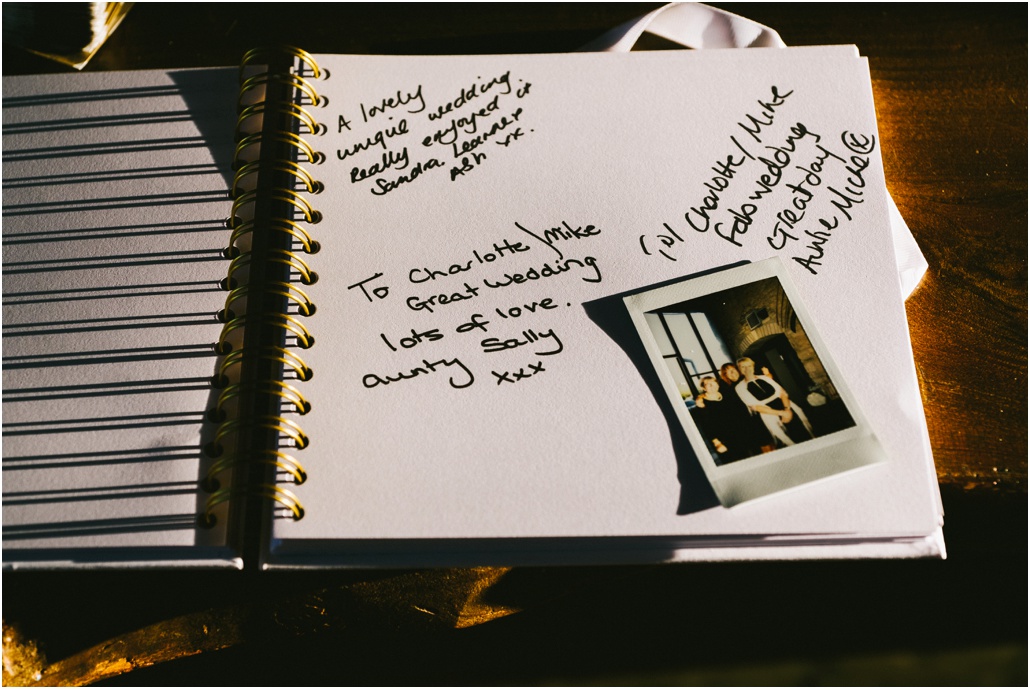 A lovely
unique wedding.
Really enjoyed it
Sandra. Leanne
Ash xx.
To Charlotte/Mike
Great wedding
lots of love.
aunty Sally
xxx
Charlotte/Mike
Fab wedding
Great day
Auntie